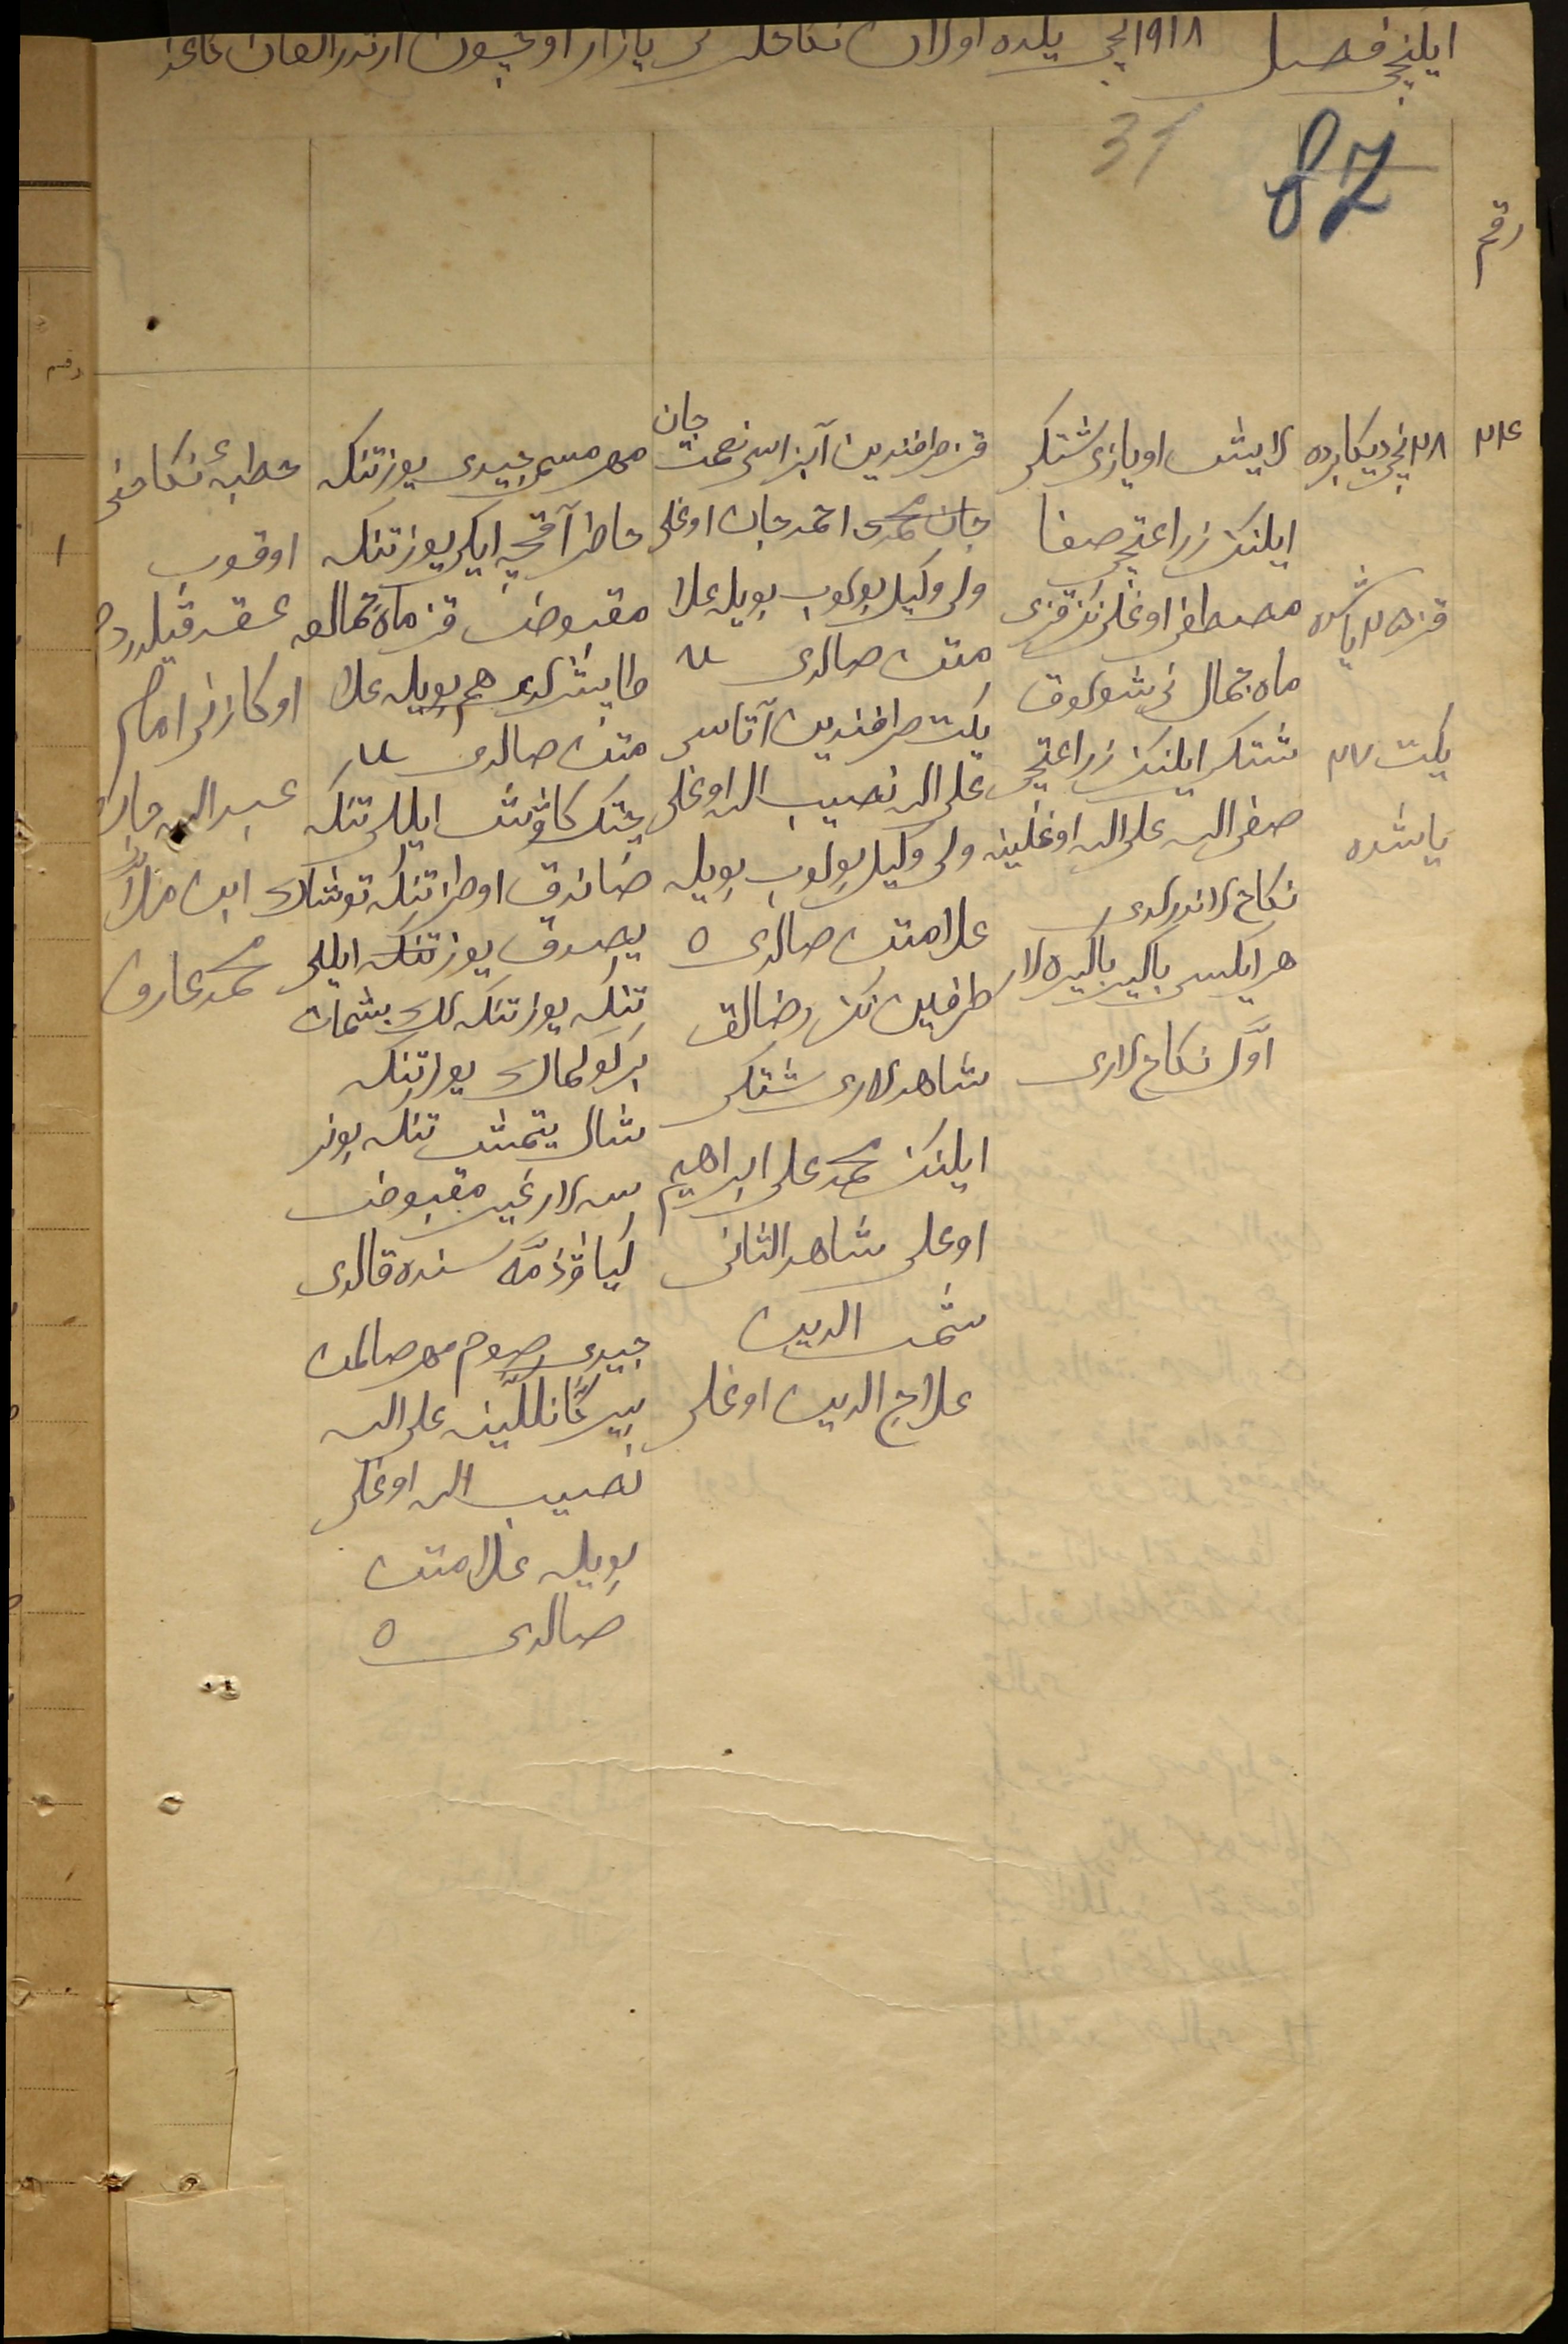 ایلنچی فصل ۱۹۱۸ نچی یلده اولان نکاحلرنی یازار اوچون ارتدرالغان کاغذ
31
87
رقم
۲۱۴
۲۸ نچی دیکابرده
قز ۲۵ یاشده
یکت ۲۷
یاشده
لایش اویازی شتکی
ایلنک زراعتچی صفا
مصطفی اوغلی نک قزی
ماه جمال نی شولوق
شتکی ایلنک زراعتچی
صفی الله علی الله اوغلینه
نکاح لاندرلدی
هر ایکیسی باکیر باکیره لا
اوّل نکاح لاری
قز طرافندین آبزاسی نعمت جان
جان محمدی احمد جان اوغلی
ولی وکیل بولوب بویله علا
متن صالدی
یکت طرافندین آتاسی
علی الله نصیب الله اوغلی
ولی وکیل بولوب بویله
علامتن صالدی ٥
طرفلین نک رضالق
شاهدلاری شتکی
ایلنک محمد علی ابراهیم
اوغلی شاهد الثانی
شمس الدین
علاج الدین اوغلی
مهر مسمی جیدی یوز تنکه
حاضر آقچه ایکی یوز تنکه
مقبوض قز ماه جمالغه
طابشرلدی هم بویله علا
متن صالدی
چتک کاوش ایللی تنکه
صاندق اوطز تنکه توشاک
یصدق یوز تنکه ایللی
تنکه یوز تنکه لک بشمات
بر کولماک یوز تنکه
شال یتمش تنکه بونر
سه لار غیر مقبوض
کیاو ذمّه سنده قالدی
جیدی صوم مهر صالمن
بیرگانللینه علی الله
نصیب الله اوغلی
بویله علامتن
صالدی ٥
خطبهٔ نکاحنی
اوقوب
عقد قیلدردم
اوکازنی امام
عبد الله جان
ابن ملا
محمد عارف
رقم
۱